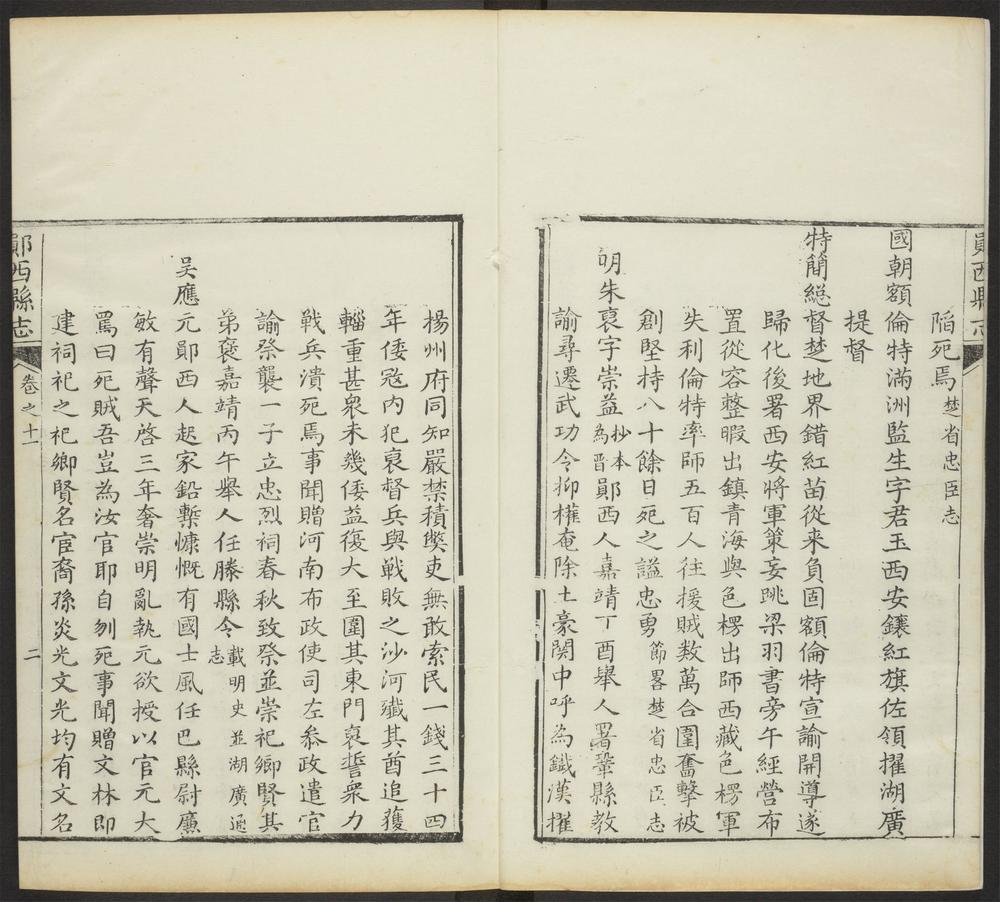 鄖西縣志
陷死焉楚省忠臣志
國朝額倫特滿洲監生字君玉西安鑲紅旗佐領擢湖廣
提督
特簡總督楚地界錯紅苗從来負固額倫特宣諭開導遂
歸化後署西安將軍策妄跳梁羽書旁午經營布
置從容整暇出鎮青海與色楞出師西藏色楞軍
失利倫特率師五百人往援賊数萬合圍奮擊被
創堅持八十餘日死之諡忠勇節畧楚省忠臣志
明朱裒字崇益抄本為晋鄖西人嘉靖丁酉舉人署鞏縣教
諭尋遷武功令抑權庵除土豪関中呼為鐡漢擢
揚州府同知嚴禁積獘吏無敢索民一錢三十四
年倭寇内犯裒督兵與戦敗之沙河殱其酋追獲
輜重甚衆未幾倭益復大至圍其東門裒誓衆力
戦兵潰死焉事聞贈河南布政使司左叅政遣官
諭祭襲一子立忠烈祠春秋致祭並崇祀鄉賢其
弟褒嘉靖丙午舉人任滕縣令載明史並湖廣通志
吴應元鄖西人起家鉛槧慷慨有國士風任巴縣尉廉
敏有聲天啓三年奢崇明亂執元欲授以官元大
罵曰死賊吾豈為汝官耶自刎死事聞贈文林郎
建祠祀之祀鄉賢名宦裔孫炎光文光均有文名
鄖西縣志
卷之十一
二